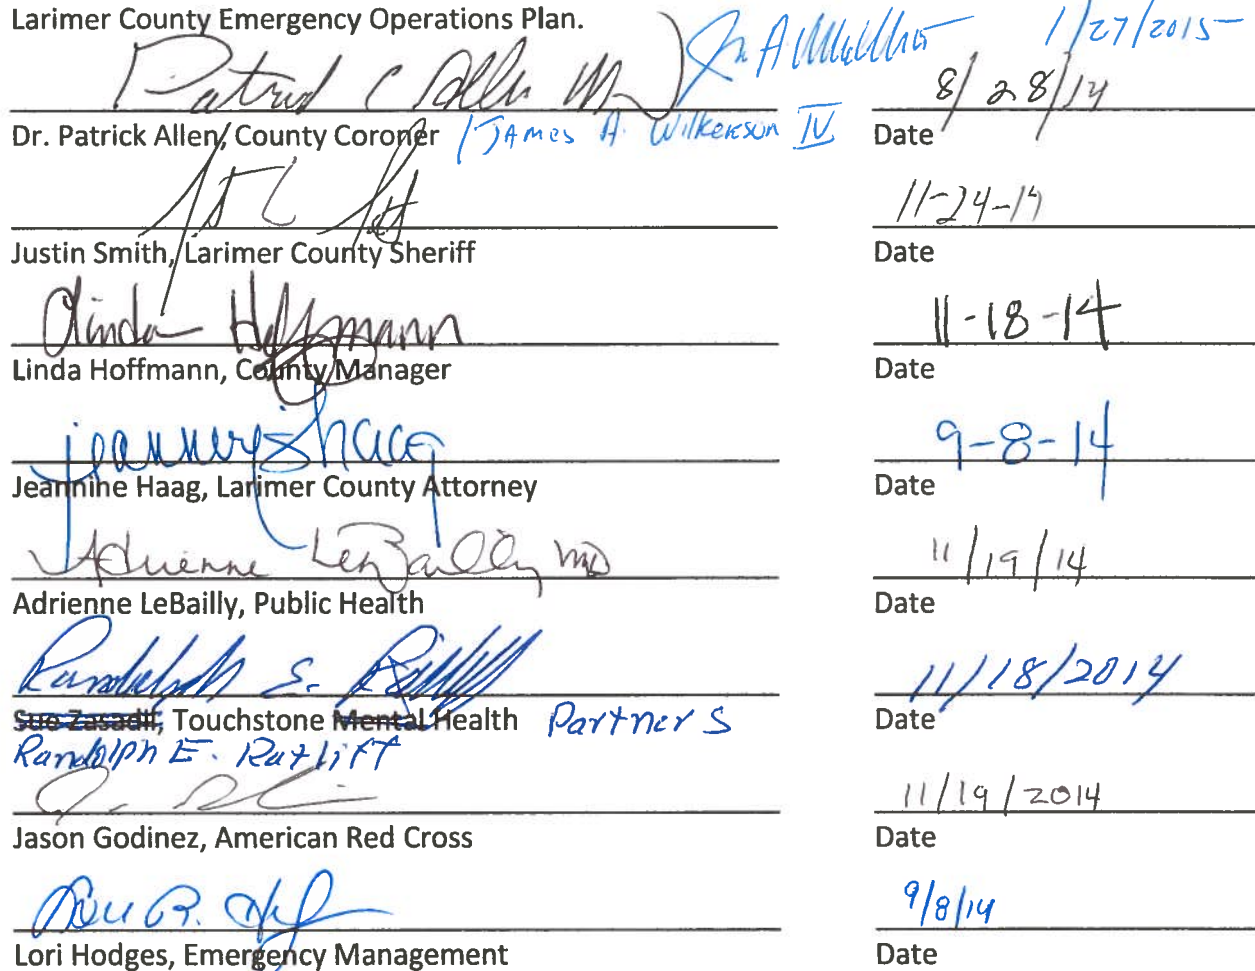 Larimer County Emergency Operations Plan.
1/27/2015
Patrick C Allen MD
8/28/14
Dr. Patrick Allen, County Coroner / JAMES A. Wilkerson IV Date
11-24-14
Justin Smith, Larimer County Sheriff Date
Linda Hoffmann 11-18-14
Linda Hoffmann, County Manager Date
Jeannine Haag 9-8-14
Jeannine Haag, Larimer County Attorney Date
Adrienne LeBailly MD 11/19/14
Adrienne LeBailly, Public Health Date
Randolph E. Ratliff 11/18/2014
Sue Zasadil, Touchstone Mental Health Partners Date
Randolph E. Ratliff
11/19/2014
Jason Godinez, American Red Cross Date
9/8/14
Lori Hodges, Emergency Management Date